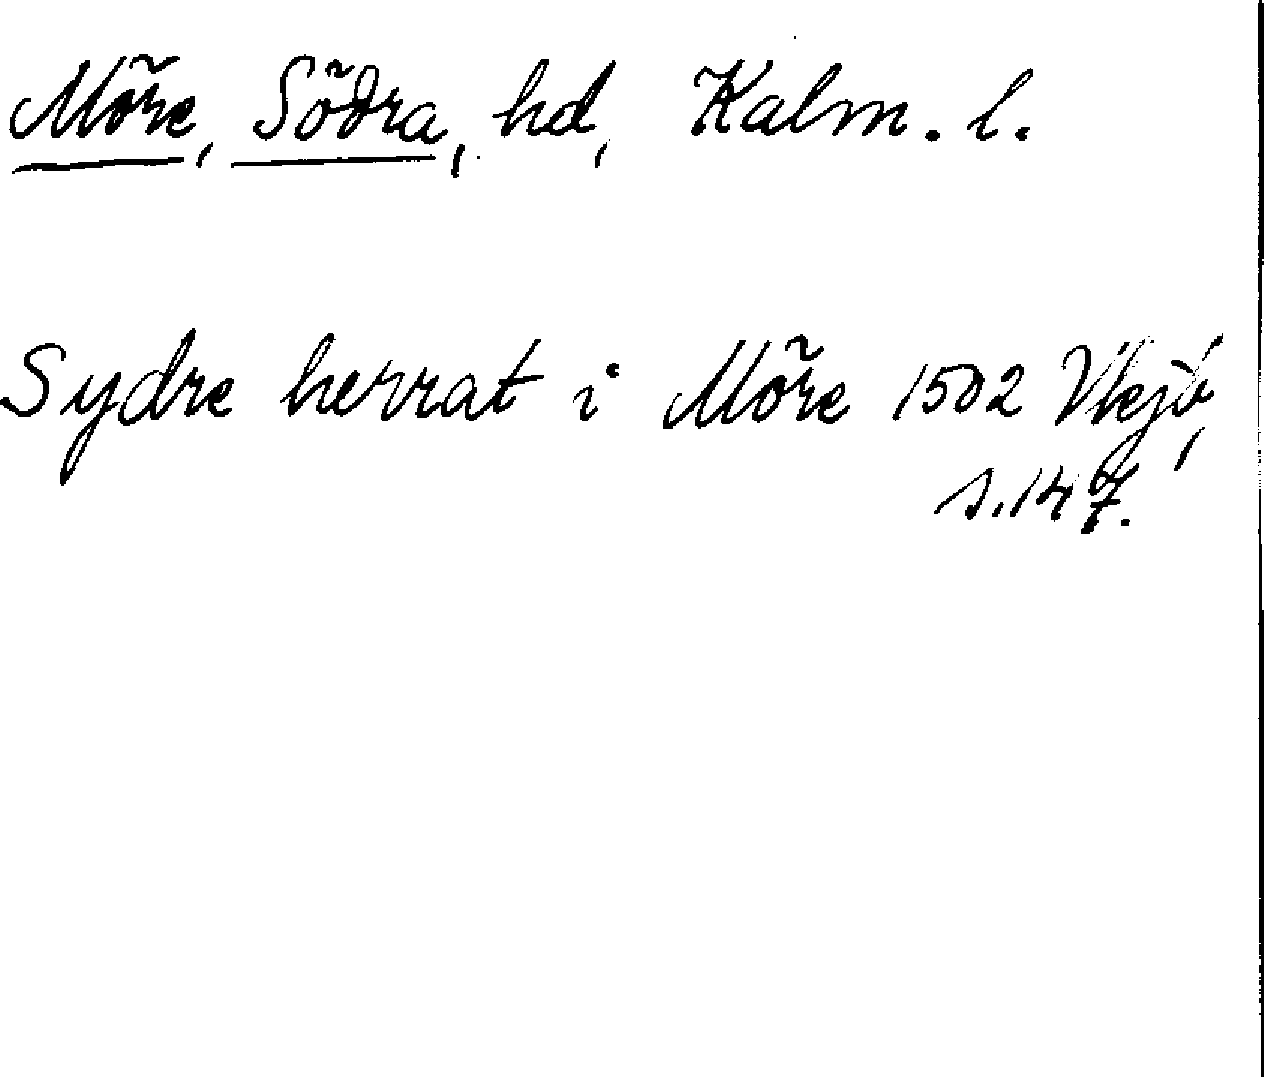 Möre, Södra, hd, Kalm. l.
Sydre herrat i Möre 1502 Vkejb,
s. 147.